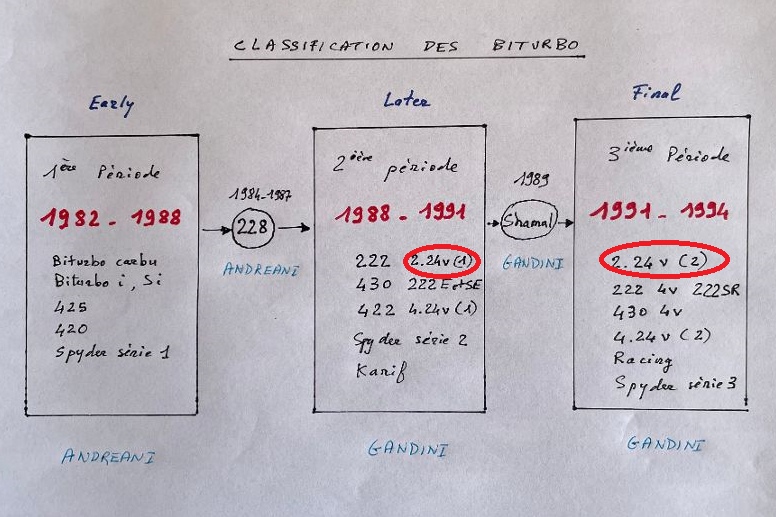 CLASSIFICATION DES BITURBO
Early
1ère Période
1982 - 1988
Biturbo carbu
Biturbo i, Si
425
420
Spyder série 1
ANDREANI
1984-1987
228
ANDREANI
Later
2ière période
1988 - 1991
222 2.24v (1)
430 222 E et SE
422 4.24v (1)
Spyder série 2
Karif
GANDINI
1989
Shamal
GANDINI
Final
3ième Période
1991 - 1994
2.24 v (2)
222 4v 222SR
430 4v
4.24v (2)
Racing
Spyder série 3
GANDINI